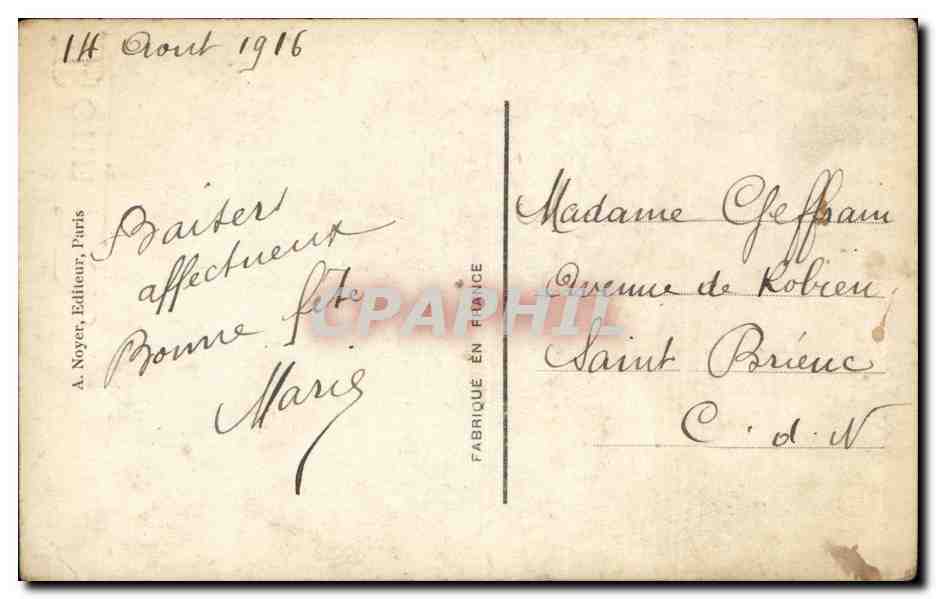 14 Aout 1916
Baisers
affectueux
Bonne fête
Marie
A. Noyer, Editeur, Paris
FABRIQUÉ EN FRANCE
Madame Geffram
Avenue de Robien
Saint Brieuc
C. d. N
CPAPHIL